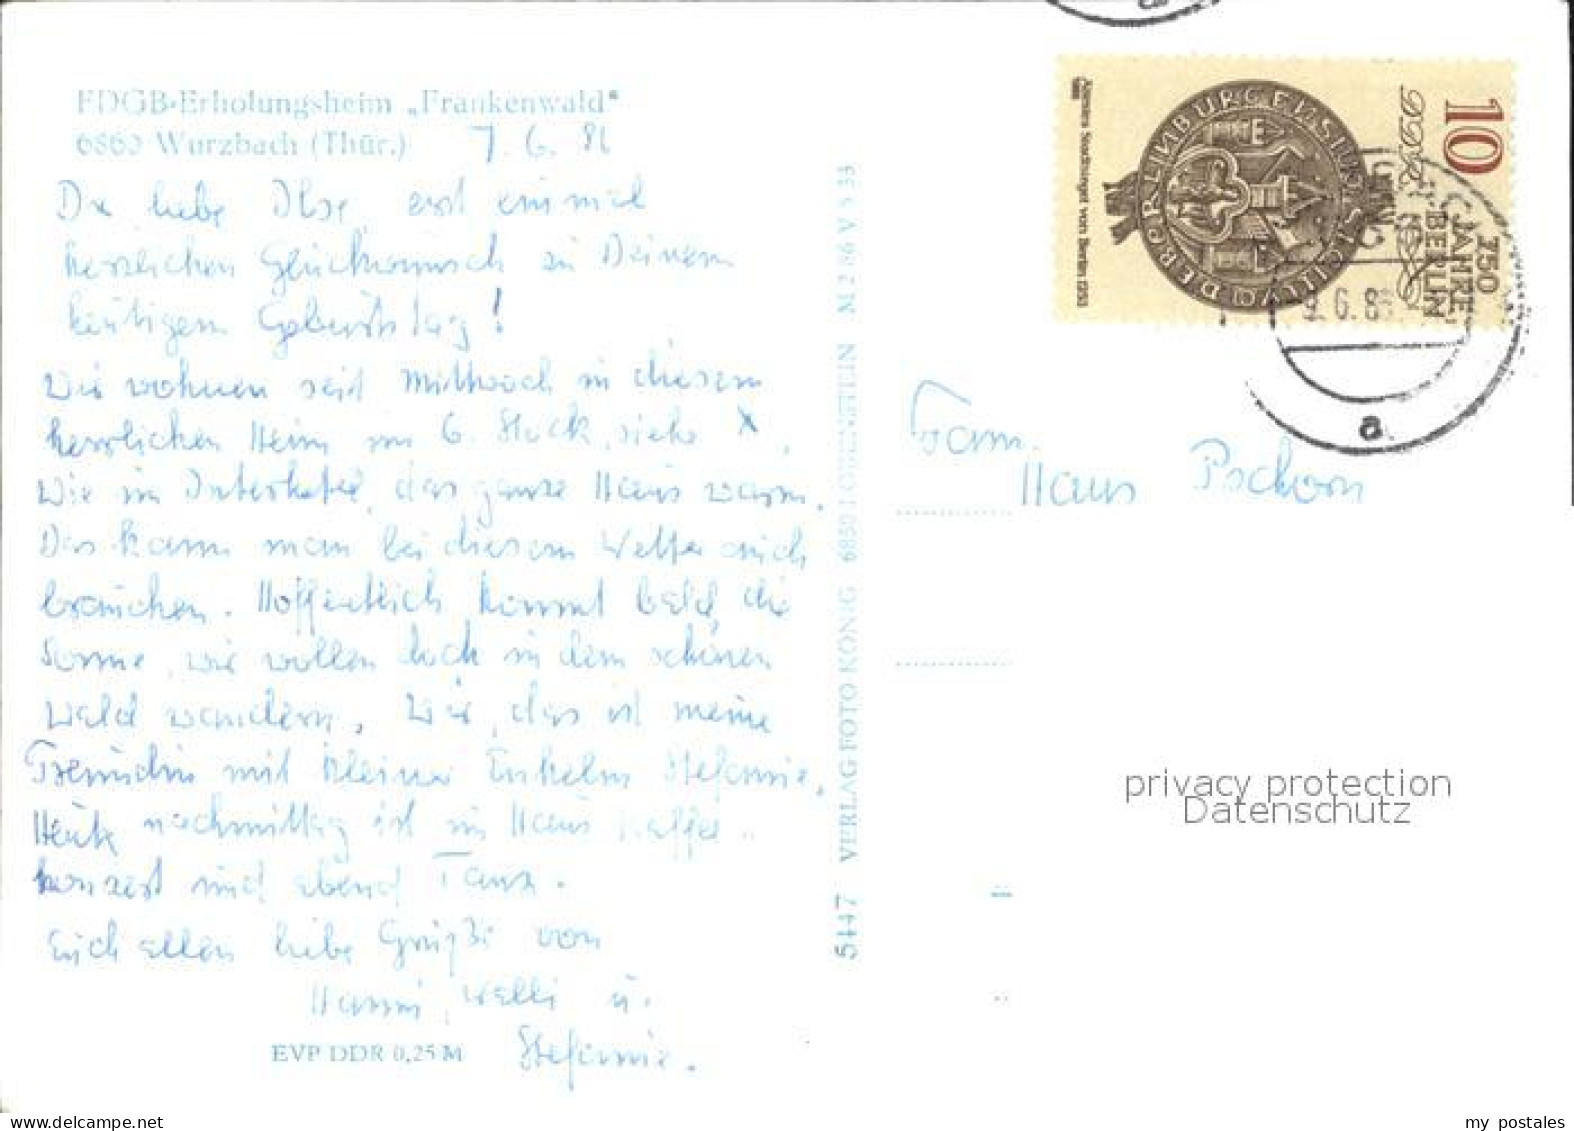 FDGB-Erholungsheim „Frankenwald“
6860 Wurzbach (Thür.) 7. 6. 86
Du liebe Ilse, erst einmal
herzlichen Glückwunsch zu Deinem
heutigem Geburtstag!
Wir wohnen seit Mittwoch in diesem
herrlichen Heim im 6. Stock, siehe X,
Wie im Interhotel, das ganze Haus warm.
Das kann man bei diesem Wetter auch
brauchen. Hoffentlich kommt bald die
Sonne, wir wollen doch in dem schönen
Wald wandern. Wir, das ist meine
Freundin mit kleiner Enkelin Stefanie.
Heute nachmittag ist im Haus Kaffee-
konzert und abend Tanz.
Euch allen liebe Grüße von
Hanni, Welli u.
Stefanie.
EVP DDR 0,25 M
5447 VERLAG FOTO KÖNIG 6850 LOBENSTEIN M 2 86 V 5 33
10
DDR
750
JAHRE
BERLIN
Ältestes Stadtsiegel von Berlin 1253
1986
9. 6. 86
a
Fam.
Haus Pschorn
privacy protection
Datenschutz
my postales